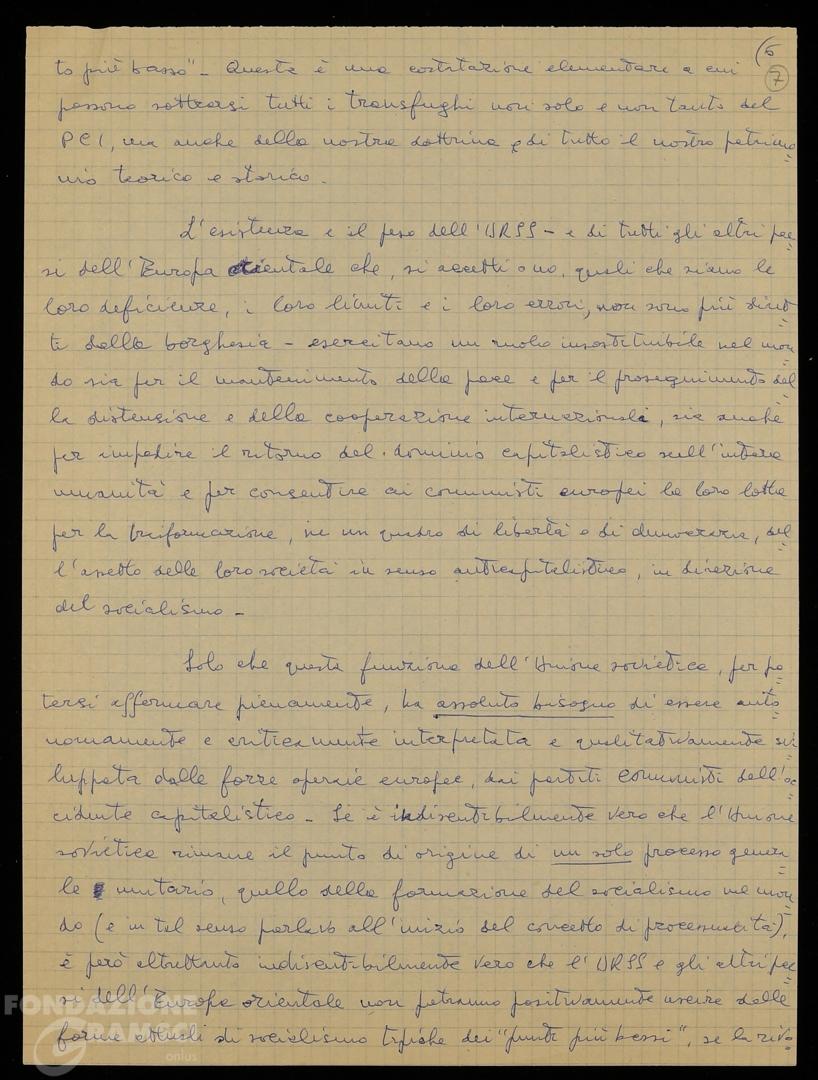 (6
7
to più basso" - Questa è una costatazione elementare a cui
possono sottrarsi tutti i transfughi non solo e non tanto del
PCI, ma anche della nostra dottrina e di tutto il nostro patrimo
nio teorico e storico.
L'esistenza e il peso dell'URSS - e di tutti gli altri pae
si dell'Europa orientale che, si accetti o no, quali che siano le
loro deficienze, i loro limiti e i loro errori, non sono più diret
ti dalla borghesia - esercitano un ruolo insostituibile nel mon
do sia per il mantenimento della pace e per il proseguimento del
la distensione e della cooperazione internazionale, sia anche
per impedire il ritorno del dominio capitalistico sull'intera
umanità e per consentire ai comunisti europei la loro lotta
per la trasformazione, in un quadro di libertà e di democrazia, del
l'assetto delle loro società in senso anticapitalistico, in direzione
del socialismo -
Solo che questa funzione dell'Unione sovietica, per po
tersi affermare pienamente, ha assoluto bisogno di essere auto
nomamente e criticamente interpretata e qualitativamente svi
luppata dalle forze operaie europee, dai partiti comunisti dell'oc
cidente capitalistico - Se è indiscutibilmente vero che l'Unione
sovietica rimane il punto di origine di un solo processo genera
le unitario, quello della formazione del socialismo nel mon
do (e in tal senso parlavo all'inizio del concetto di processualità),
è però altrettanto indiscutibilmente vero che l'URSS e gli altri pae
si dell'Europa orientale non potranno positivamente uscire dalle
forme attuali di socialismo tipiche dei "punti più bassi", se la rivo
FONDAZIONE
GRAMSCI
onlus